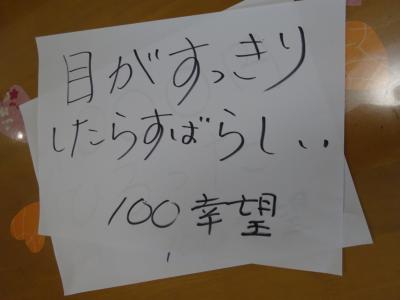 目がすっきり
したらすばらしい
100幸望
1